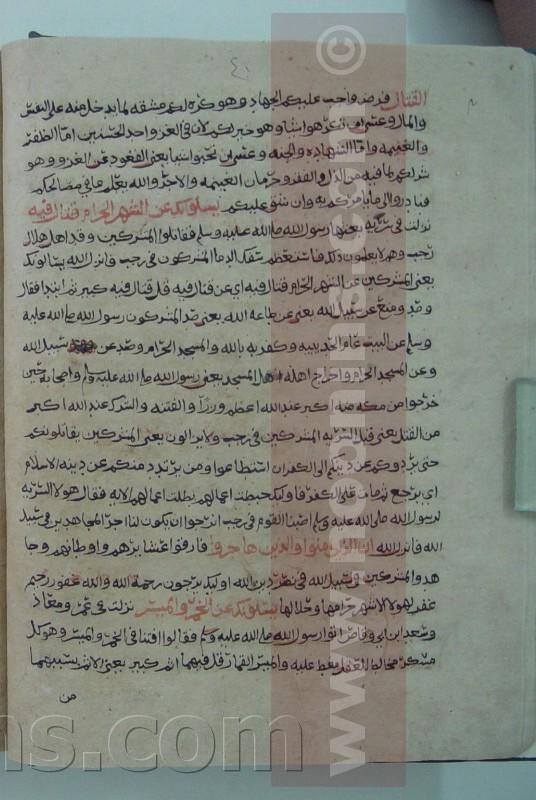 ٤٠
القتال فرض واجب عليكم الجهاد وهو كره لكم مشقه لما يدخل منه على النفس
والمال وعسى ان تكرهوا شيا وهو خير لكم لان في الغزو احد الحسنيين اما الظفر
والغنيمه واما الشهاده والجنه وعسى ان تحبوا شيا يعني القعود عن الغزو وهو
شر لكم لما فيه من الذل والفقر وحرمان الغنيمه والاجر والله يعلم ما في مصالحكم
فبادروا الى ما يامركم به وان شق عليكم يسلونك عن الشهر الحرام قتال فيه
نزلت في سريه بعثها رسول الله صلى الله عليه وسلم فقاتلوا المشركين وقد اهل هلال
رجب وهم لا يعلمون ذلك فاستعظم سفك الدما المشركون في رجب فانزل الله يسالونك
يعني المشركين عن الشهر الحرام قتال فيه اي عن قتال فيه قل قتال فيه كبير ثم ابتدا فقال
وصد ومنع عن سبيل الله يعني عن طاعه الله يعني صد المشركون رسول الله صلى الله عليه
وسلم عن البيت عام الحديبيه وكفر به بالله والمسجد الحرام وصد عن سبيل الله
وعن المسجد الحرام واخراج اهله اهل المسجد يعني رسول الله صلى الله عليه وسلم واصحابه حين
خرجوا من مكه منه اكبر عند الله اعظم وزرا والفتنه والشرك عند الله اكبر
من القتل يعني قتل السريه المشركين في رجب ولا يزالون يعني المشركين يقاتلونكم
حتى يردوكم عن دينكم الى الكفر ان استطاعوا ومن يرتدد منكم عن دينه الاسلام
اي يرجع فيمت على الكفر فاولئك حبطت اعمالهم بطلت اعمالهم الايه فقال هولا السريه
لرسول الله صلى الله عليه وسلم اصبنا القوم في رجب انرجوا ان يكون لنا اجر المجاهدين في سبيل
الله فانزل الله ان الذين امنوا والذين هاجروا فارقوا عشايرهم واوطانهم وجا
هدوا المشركين في سبيل الله في نصر دين الله اوليك يرجون رحمة الله والله غفور رحيم
غفر لهولا الاشهر حرامها وحلالها يسلونك عن الخمر والميسر نزلت في عمر ومعاذ
وسعد ابن ابي وقاص اتوا رسول الله صلى الله عليه وسلم فقالوا افتنا في الخمر والميسر وهو كل
مسكر مخالط للعقل مغط عليه والميسر القمار قل فيهما اثم كبير يعني الاثم بسببهما
من
© www.hoomams.com
ms.com